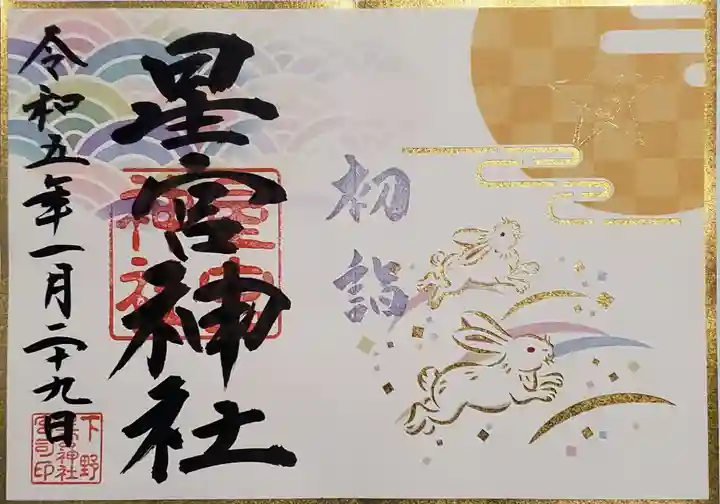 初詣
星宮神社
星宮神社
令和五年一月二十九日
下野
星宮神社
宮司印